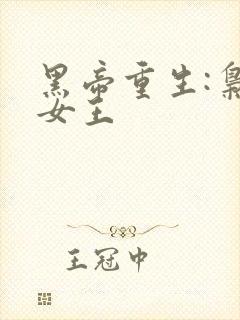 黑帝重生:枭
女王
王冠中